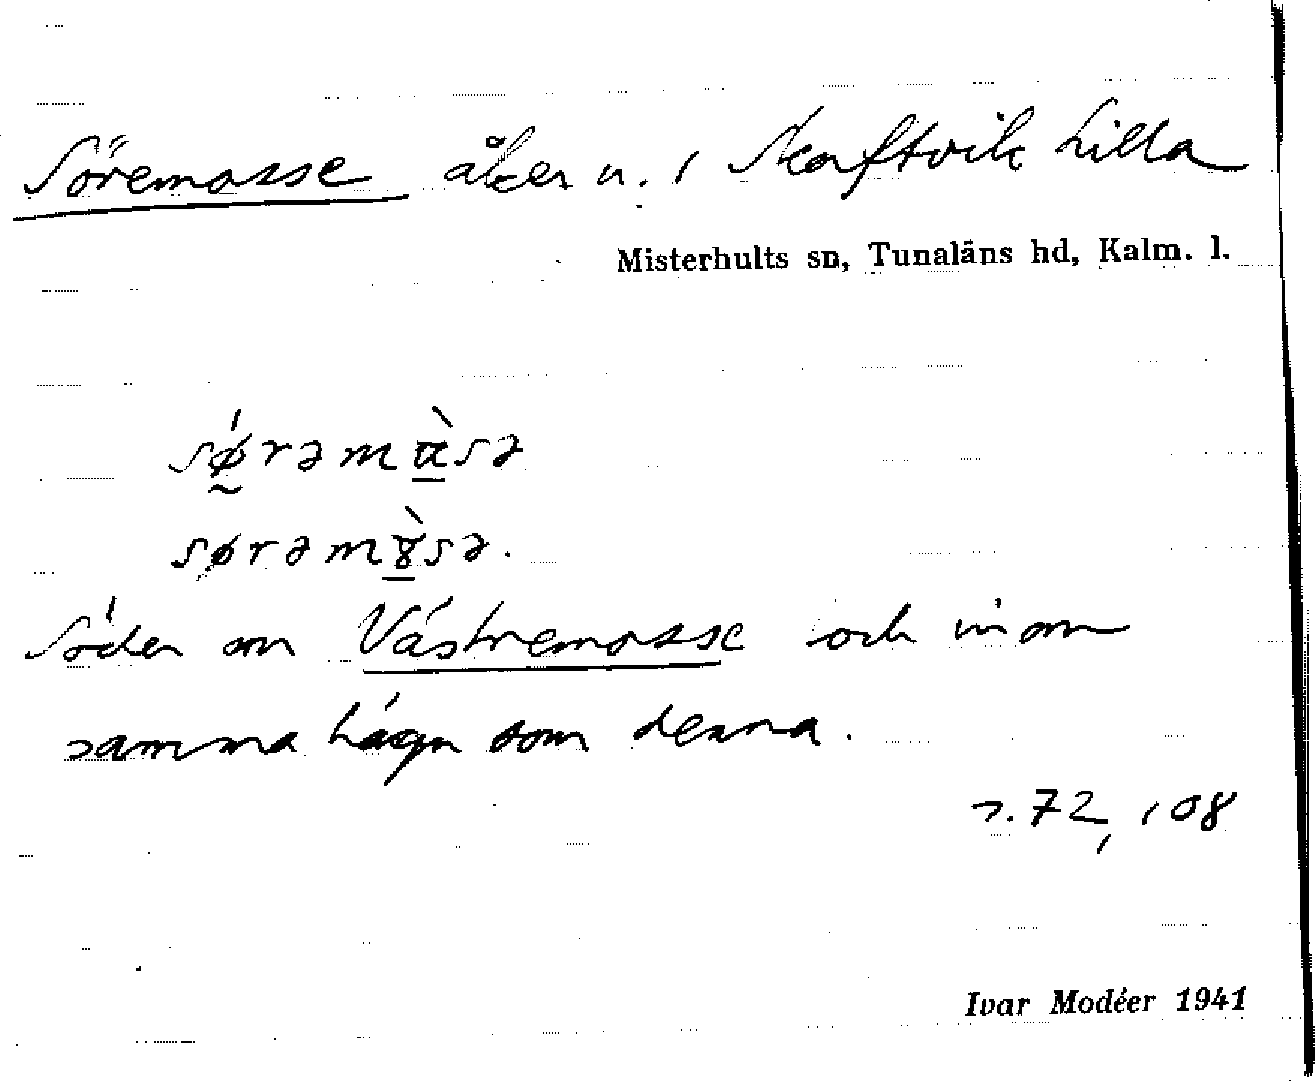 Söremosse åker u. / Skaftvik Lilla
Misterhults sn, Tunaläns hd, Kalm. l.
Söder om Västremosse och inom
samma hägn som denna.
s. 72, 108
Ivar Modéer 1941